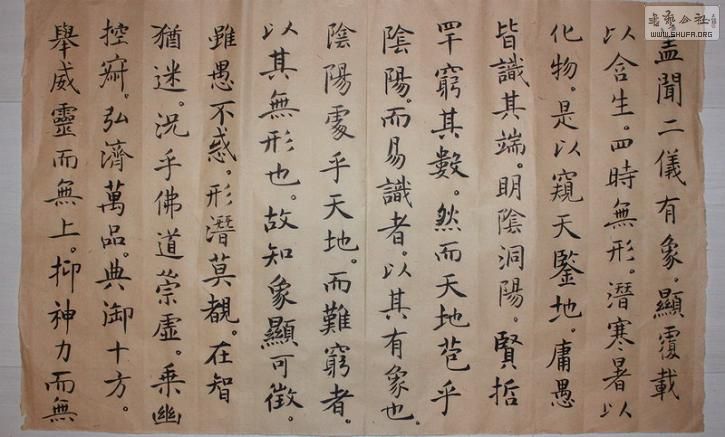 盖聞二儀有象。顯覆載
以含生。四時無形。潛寒暑以
化物。是以窺天鑒地。庸愚
皆識其端。明陰洞陽。賢哲
罕窮其數。然而天地苞乎
陰陽。而易識者。以其有象也。
陰陽處乎天地。而難窮者。
以其無形也。故知象顯可徵。
雖愚不惑。形潛莫覩。在智
猶迷。況乎佛道崇虛。乘幽
控寂。弘濟萬品。典御十方。
舉威靈而無上。抑神力而無
書藝公社
WWW.SHUFA.ORG